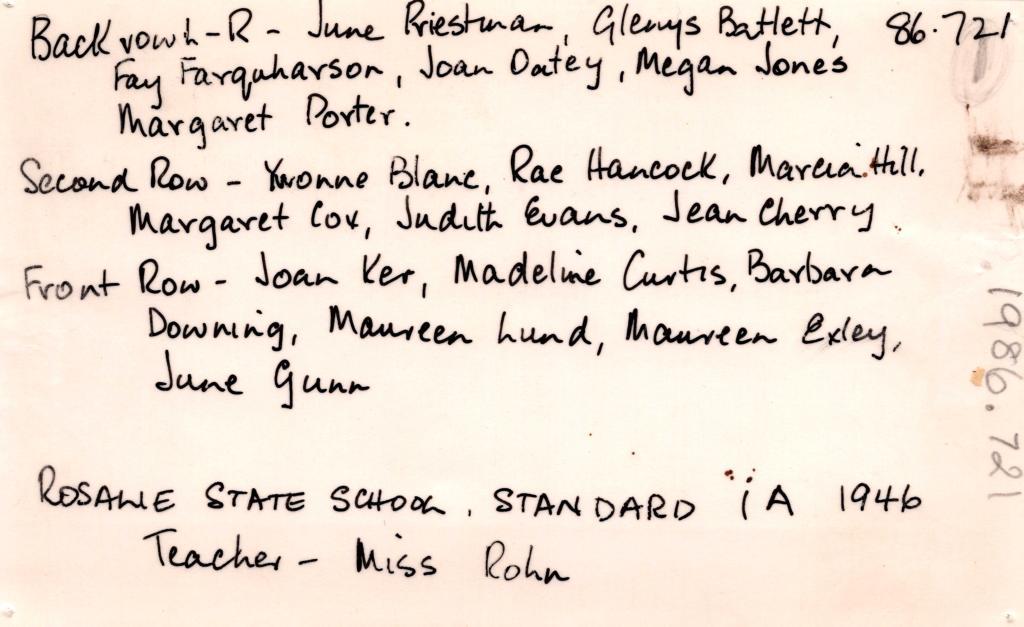 Back row L-R - June Priestman, Glenys Batlett, 86.721
Fay Farquharson, Joan Oatey, Megan Jones
Margaret Porter.
Second Row - Yvonne Blanc, Rae Hancock, Marcia Hill,
Margaret Cox, Judith Evans, Jean Cherry
Front Row - Joan Ker, Madeline Curtis, Barbara
Downing, Maureen Lund, Maureen Exley,
June Gunn
ROSALIE STATE SCHOOL, STANDARD 1A 1946
Teacher - Miss Rohn
1986.721